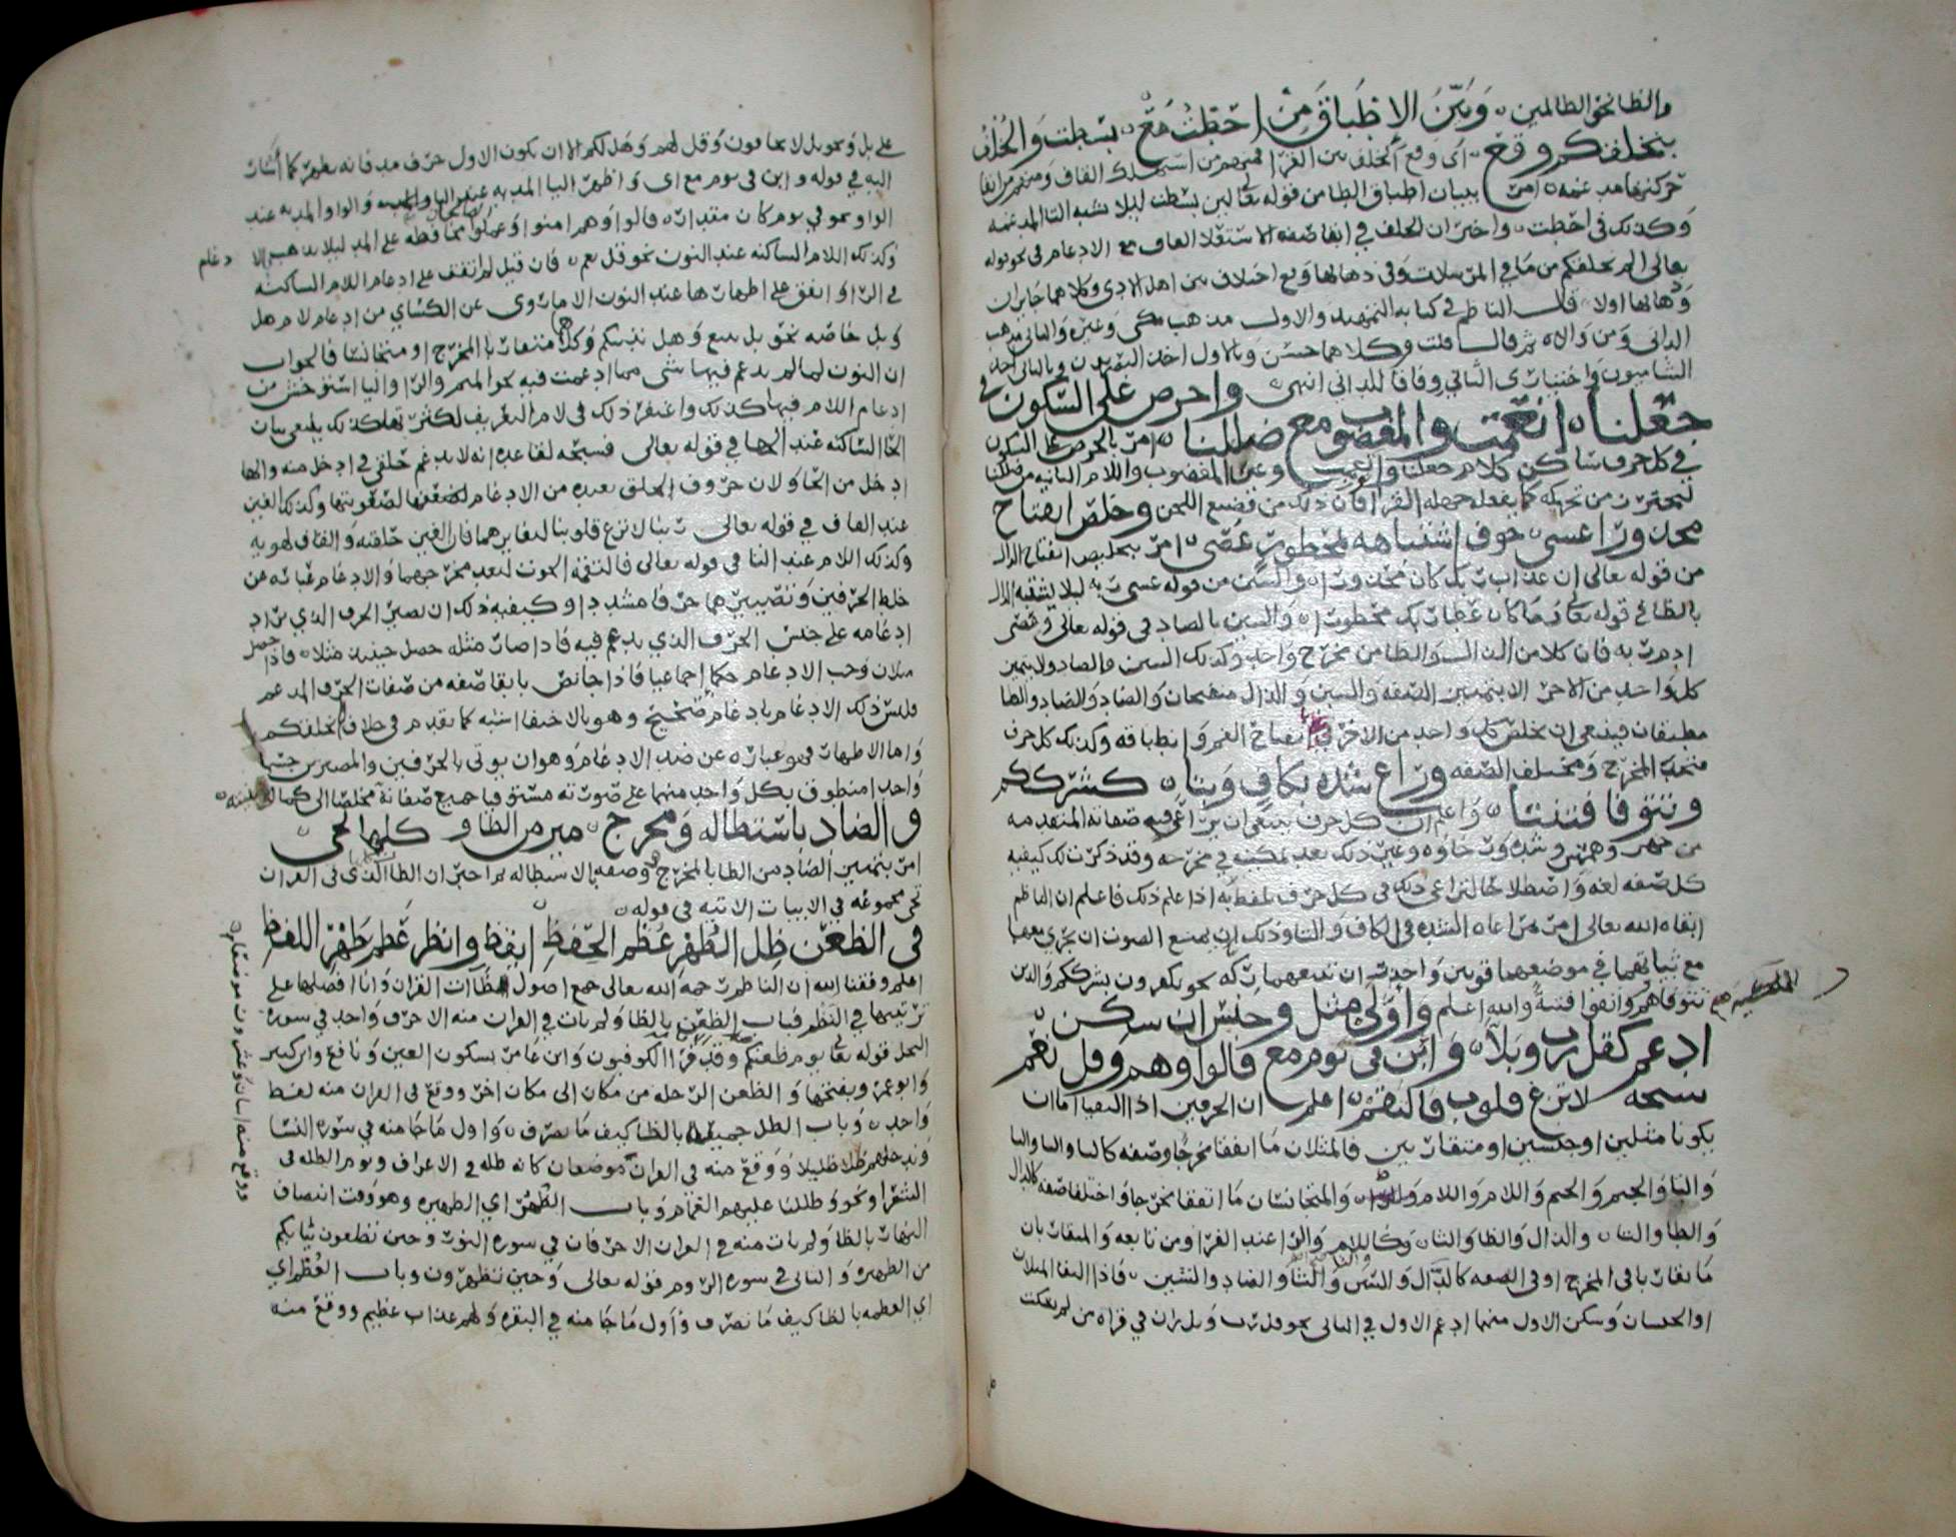 والظا نحو الظالمين ٥ وَبَيّنِ الاِطْبَاقَ مِنْ اَحَطْتُ مَعْ ٥ بسَطت وَالخُلْفُ
بنخلقكم وقع ٥ اي وقع الخلف بين القرا فمنهم من استهلك القاف ومنهم من ابقا
امر ببيان اطباق الطا من قوله تعالى لين بسطت ليلا تشبه التا المدغمة
وكذلك في احطت ٥ واخبر ان الخلف في ابقا صفة الاستعلا القاف مع الادغام في نحو قوله
تعالى الم نخلقكم من ما في المرسلات وفي ذهابها وقع اختلاف بين اهل الادا وكلاهما جايزان
قال الناظم في كتابه التمهيد والاول مذهب مكي وغيره والثاني مذهب
الداني ومن والاه ثم قال قلت وكلاهما حسن وبالاول اخذ المصريون وبالثاني اخذ
الشاميون واختياري الثاني وفاقا للداني انتهى واحرص على السكون في
جعلنا ٥ انعمت والمغضوب مع ضللنا ٥ امر بالحرص على السكون
في كل حرف ساكن كلام جعلنا والنون وغين المغضوب واللام الثانية من ضللنا
ليحترز من تحريكه كما يفعله جهلة القرا فان ذلك من فضيع اللحن وخلص انفتاح
محذورا عسى ٥ خوف اشتباهه بمحظورا عصى ٥ امر بتخليص انفتاح الذال
من قوله تعالى ان عذاب ربك كان محذورا ٥ والسين من قوله عسى ربه ليلا يشتبه الذال
بالظا في قوله تعالى وما كان عطا ربك محظورا ٥ والسين بالصاد في قوله تعالى وعصى
ادم ربه فان كلا من الذال والظا من مخرج واحد وكذلك السين والصاد ولا يتميز
كل واحد من الاخر الا بتمييز الصفة والسين والذال منفتحان والصاد والظا
مطبقان فينبغي ان يخلص كل واحد من الاخر بانفتاح الفم وانطباقه وكذلك كل حرف
متحد المخرج ومختلف الصفه وراع شدة بكاف وبتا ٥ كشرككم
وتتوفا فتنتا ٥ واعلم ان كل حرف ينبغي ان يراعى فيه صفاته المتقدمة
من جهر وهمس وشدة ورخاوة وغير ذلك بعد تمكينه في مخرجه وقد ذكرت لك كيفية
كل صفة لغة واصطلاحا لتراعي ذلك في كل حرف تلفظ به اذا علم ذلك فاعلم ان الناظم
ابقاه الله تعالى امر بمراعاة الشدة في الكاف والتا وذلك ان يمنع الصوت ان يجري معهما
مع ثباتهما في موضعهما قويين واحذر ان تتبعهما ركة نحو يكفرون بشرككم والذين
تتوفاهم واتقوا فتنة والله اعلم وَاَوَّلَيْ مثل وجنس ان سكن ٥
ادغم كقل رب وبلا ٥ وَابن في يوم مع قالوا وهم وقل نعم
سبحه لا تزغ قلوب فالتقم ٥ اعلم ان الحرفين اذا التقيا اما ان
يكونا مثلين او جنسين او متقاربين فالمثلان ما اتفقا مخرجا وصفة كالبا والبا والتا
والتا والجيم والجيم واللام واللام ٥ والمتجانسان ما اتفقا مخرجا واختلفا صفة كالدال
والطا والتا ٥ والذال والظا والثا ٥ وكاللام والرا عند الفرا ومن تابعه والمتقاربان
ما تقاربا في المخرج او في الصفه كالدال والسين والثا والتا والضاد والشين ٥ فاذا التقا المثلان
او الجنسان وسكن الاول منهما ادغم الاول في الثاني نحو قل رب وبل ران في قراة من لم يسكت
على بل ونحو بل لا يخافون وقل لهم وهل لكم الا ان يكون الاول حرف مد فانه يظهر كما اشار
اليه في قوله وابن في يوم مع اي واظهر اليا المديه عند اليا والواو المديه عند
الواو نحو في يوم كان مقداره قالوا وهم امنوا وعملوا محافظة على المد ليلا يذهب بالا
دغام
وكذلك اللام الساكنه عند النون نحو قل نعم ٥ فان قيل لم اتفق على ادغام اللام الساكنه
في الرا واتفق على اظهارها عند النون الا ما روي عن الكساي من ادغام لام هل
وبل خاصة نحو بل نتبع وهل نذيقكم وكلاهما متقاربا المخرج او متجانسا فالجواب
ان النون لما لم يدغم فيها شي مما ادغمت فيه نحو الميم والرا واليا استوحش من
ادغام اللام فيها كذلك واغتفر ذلك في لام التعريف لكثرتها كذلك ينبغي بيان
الحا الساكنه عند الها في قوله تعالى فسبحه لقاعدة انه لا يدغم حلقي في ادخل منه والها
ادخل من الحا ولان حروف الحلق بعيدة من الادغام لصعوبتها وكذلك الغين
عند القاف في قوله تعالى ربنا لا تزغ قلوبنا لتغايرهما فان الغين حلقيه والقاف لهويه
وكذلك اللام عند التا في قوله تعالى فالتقمه الحوت لبعد مخرجهما والادغام عبارة عن
خلط الحرفين وتصييرهما حرفا مشددا وكيفية ذلك ان تصير الحرف الذي يراد
ادغامه على جنس الحرف الذي يدغم فيه فاذا صار مثله حصل حينيذ مثلان فاذا حصل
مثلان وجب الادغام حكما اجماعيا فاذا جا نص بابقا صفه من صفات الحرف المدغم
فليس ذلك الادغام بادغام صحيح وهو بالاخفا اشبه كما تقدم في خلاف نخلقكم
واما الاظهار فهو عبارة عن ضد الادغام وهو ان يوتى بالحرفين المصيرين جسما
واحدا منطوق بكل واحد منهما على صورته مستوفيا جميع صفاته مخلصا الى كمال بنيته ٥
والضاد باستطالة ومخرج ٥ ميز من الظا وكلها تجي ٥
امر بتمييز الضاد من الظا بالمخرج وصفة الاستطالة ثم اخبر ان الظا الذي في القران
تجي مجموعه في الابيات الاتيه في قوله ٥
في الظعن ظل الظهر عظم الحفظ ايقظ وانظر عظم ظهر اللفظ
اعلم وفقنا الله ان الناظم رحمه الله تعالى جمع اصول ظاات القران وانا افصلها على
ترتيبها في النظم فباب الظعن بالظا ولم يات في القران منه الا حرف واحد في سورة
النحل قوله تعالى يوم ظعنكم وقد قرا الكوفيون وابن عامر بسكون العين ونافع وابن كثير
وابو عمرو بفتحها والظعن الرحلة من مكان الى مكان اخر ووقع في القران منه لفظ
واحد ٥ وباب الظل جميعه بالظا كيف ما تصرف ٥ واول ما جا منه في سورة النسا
وندخلهم ظلا ظليلا ووقع منه في القران موضعان كانه ظله في الاعراف ويوم الظله في
الشعرا ونحو وظللنا عليهم الغمام وباب الظهر اي الظهيره وهو وقت انتصاف
النهار بالظا ولم يات منه في القران الا حرفان في سورة النور وحين تضعون ثيابكم
من الظهيره والثاني في سورة الروم قوله تعالى وحين تظهرون وباب العظم اي
اي العظمه بالظا كيف ما تصرف واول ما جا منه في البقره ولهم عذاب عظيم ووقع منه